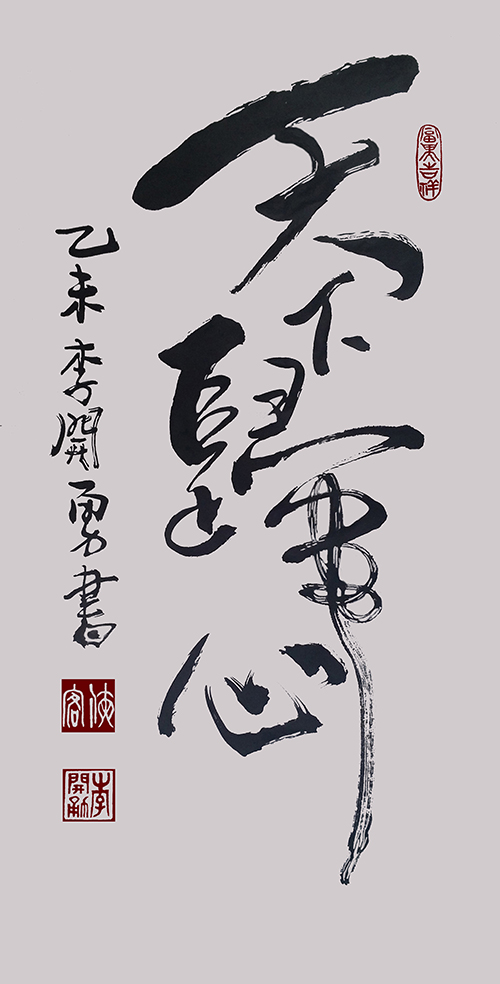 天下歸心
乙未李開勇書
富貴吉祥
李開勇